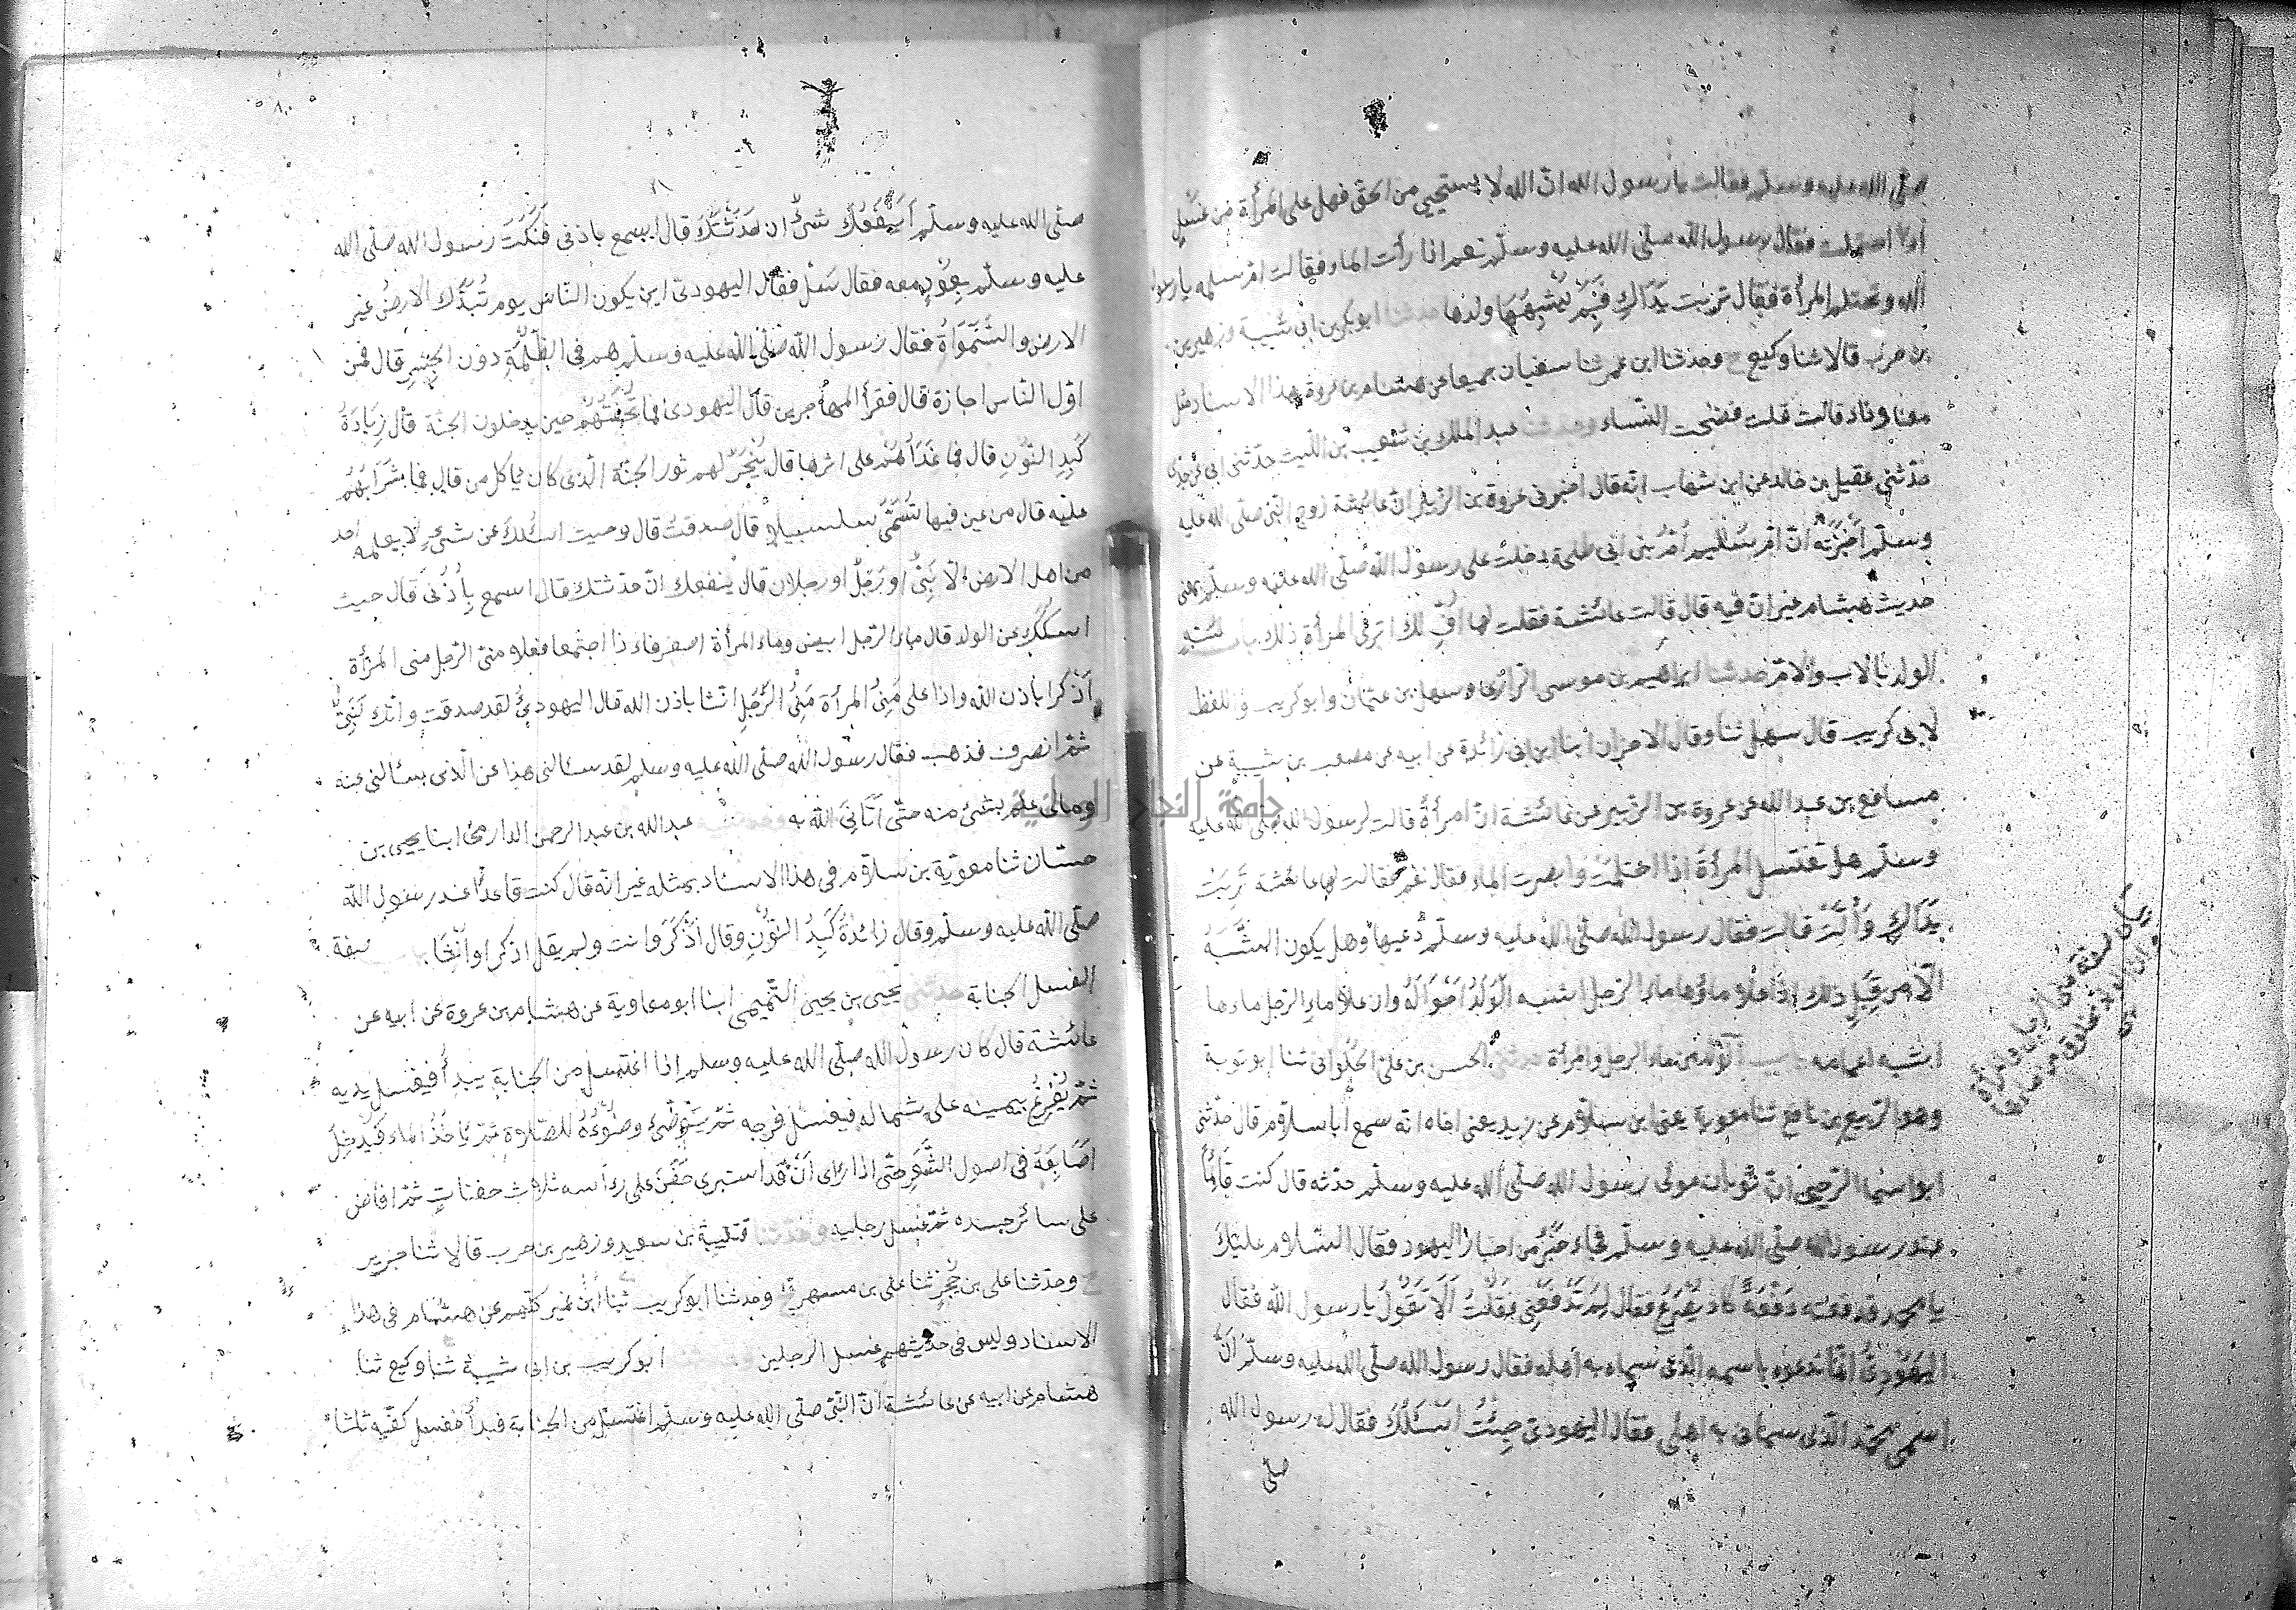 صلى الله عليه وسلم فقالت يا رسول الله ان الله لا يستحيي من الحق فهل على المرأة من غسل
اذا احتلمت فقال رسول الله صلى الله عليه وسلم نعم اذا رأت الماء فقالت ام سلمه يا رسول
الله وتحتلم المرأة فقال تربت يداك فبم يشبهها ولدها حدثنا ابو بكر بن ابى شيبة وزهير بن
بن حرب قالا ثنا وكيع ح وحدثنا ابن عمر ثنا سفيان جميعا عن هشام بن عروة بهذا الاسناد مثل
معناه وزاد قالت قلت فضحت النساء وحدثنا عبد الملك بن شعيب بن الليث حدثنى ابى عن جدى
حدثنى عقيل بن خالد عن ابن شهاب انه قال اخبرنى عروة بن الزبير ان عائشة زوج النبى صلى الله عليه
وسلم اخبرته ان ام سليم ام بنى ابى طلحة دخلت على رسول الله صلى الله عليه وسلم بمعنى
حديث هشام غير ان فيه قال قالت عائشة فقلت لها اف لك اترى المرأة ذلك باب شبه
الولد بالاب والام حدثنا ابراهيم بن موسى الرازى وسهل بن عثمان وابو كريب واللفظ
لابى كريب قال سهل ثنا وقال الاخران ابنا ابن ابى زائدة عن ابيه عن مصعب بن شيبة عن
مسافع بن عبد الله عن عروة بن الزبير عن عائشة ان امرأة قالت لرسول الله صلى الله عليه
وسلم هل تغتسل المرأة اذا احتلمت وابصرت الماء فقال نعم فقالت لها عائشة تربت
يداك وألت قالت فقال رسول الله صلى الله عليه وسلم دعيها وهل يكون الشبه
الا من قبل ذلك اذا علا ماؤها ماء الرجل اشبه الولد اخواله وان علا ماء الرجل ماءها
اشبه اعمامه باب الولد من ماء الرجل والمرأة حدثنى الحسن بن على الحلوانى ثنا ابو توبة
وهو الربيع بن نافع ثنا معوية يعنى ابن سلام عن زيد يعنى اخاه انه سمع أبا سلام قال حدثنى
ابو اسما الرحبى ان ثوبان مولى رسول الله صلى الله عليه وسلم حدثه قال كنت قائما
عند رسول الله صلى الله عليه وسلم فجاء حبر من احبار اليهود فقال السلام عليك
يا محمد فدفعته دفعة كاد يصرع فقال لم تدفعنى فقلت الا تقول يا رسول الله فقال
اليهودى انما ندعوه باسمه الذى سماه به أهله فقال رسول الله صلى الله عليه وسلم ان
اسمى محمد الذى سمانى به اهلى فقال اليهودى جئت اسئلك فقال له رسول الله
صلى
صلى الله عليه وسلم أينفعك شئ ان حدثتك قال اسمع باذنى فنكت رسول الله صلى الله
عليه وسلم بعود معه فقال سل فقال اليهودى اين يكون الناس يوم تبدل الارض غير
الارض والسموات فقال رسول الله صلى الله عليه وسلم هم فى الظلمة دون الجسر قال فمن
اول الناس اجازة قال فقرأ المهاجرين قال اليهودى فما تحفتهم حين يدخلون الجنة قال زيادة
كبد النون قال فما غداهم على اثرها قال ينحر لهم ثور الجنة الذى كان يأكل من قال فما شرابهم
عليه قال من عين فيها تسمى سلسبيلا قال صدقت قال وجيت اسئلك عن شئ لا يعلمه احد
من اهل الارض الا نبى او رجل او رجلان قال ينفعك ان حدثتك قال اسمع بأذنى قال جيت
اسئلك عن الولد قال ماء الرجل ابيض وماء المرأة اصفر فاذا اجتمعا فعلا منى الرجل منى المرأة
أذكرا بأذن الله واذا على منى المرأة منى الرجل انثا باذن الله قال اليهودى لقد صدقت وانك لنبى
ثم انصرف فذهب فقال رسول الله صلى الله عليه وسلم لقد سئالنى هذا عن الذى سئالنى عنه
ومالى علم بشئ منه حتى أتانى الله به وحدثنيه عبد الله بن عبد الرحمن الدارمى ابنا يحيى بن
حسان ثنا معوية بن سلام فى هذا الاسناد بمثله غير انه قال كنت قاعدا عند رسول الله
صلى الله عليه وسلم وقال زائدة كبد النون وقال أذكر وانث ولم يقل اذكرا وأنثا باب صفة
الغسل الجنابة حدثنا يحيى بن يحيى التميمى ابنا ابو معاوية عن هشام بن عروة عن ابيه عن
عائشة قال كان رسول الله صلى الله عليه وسلم اذا اغتسل من الجنابة يبدأ فيغسل يديه
ثم يفرغ بيمينه على شماله فيغسل فرجه ثم يتوضئ وضوءه للصلاة ثم يأخذ الماء فيدخل
اصابعه فى اصول الشعر حتى اذا راى أن قد استبرى حفن على رأسه ثلاث حفنات ثم افاض
على سائر جسده ثم غسل رجليه وحدثنا قتيبة بن سعيد وزهير بن حرب قالا ثنا جرير
ح وحدثنا على بن حجر ثنا على بن مسهر ح وحدثنا ابو كريب ثنا ابن نمير كلهم عن هشام فى هذا
الاسناد وليس فى حديثهم غسل الرجلين وحدثنا ابو كريب بن ابى شيبة ثنا وكيع ثنا
هشام عن ابيه عن عائشة ان النبى صلى الله عليه وسلم اغتسل من الجنابة فبدأ فغسل كفيه ثلثا
جامعة النجاح الوطنية